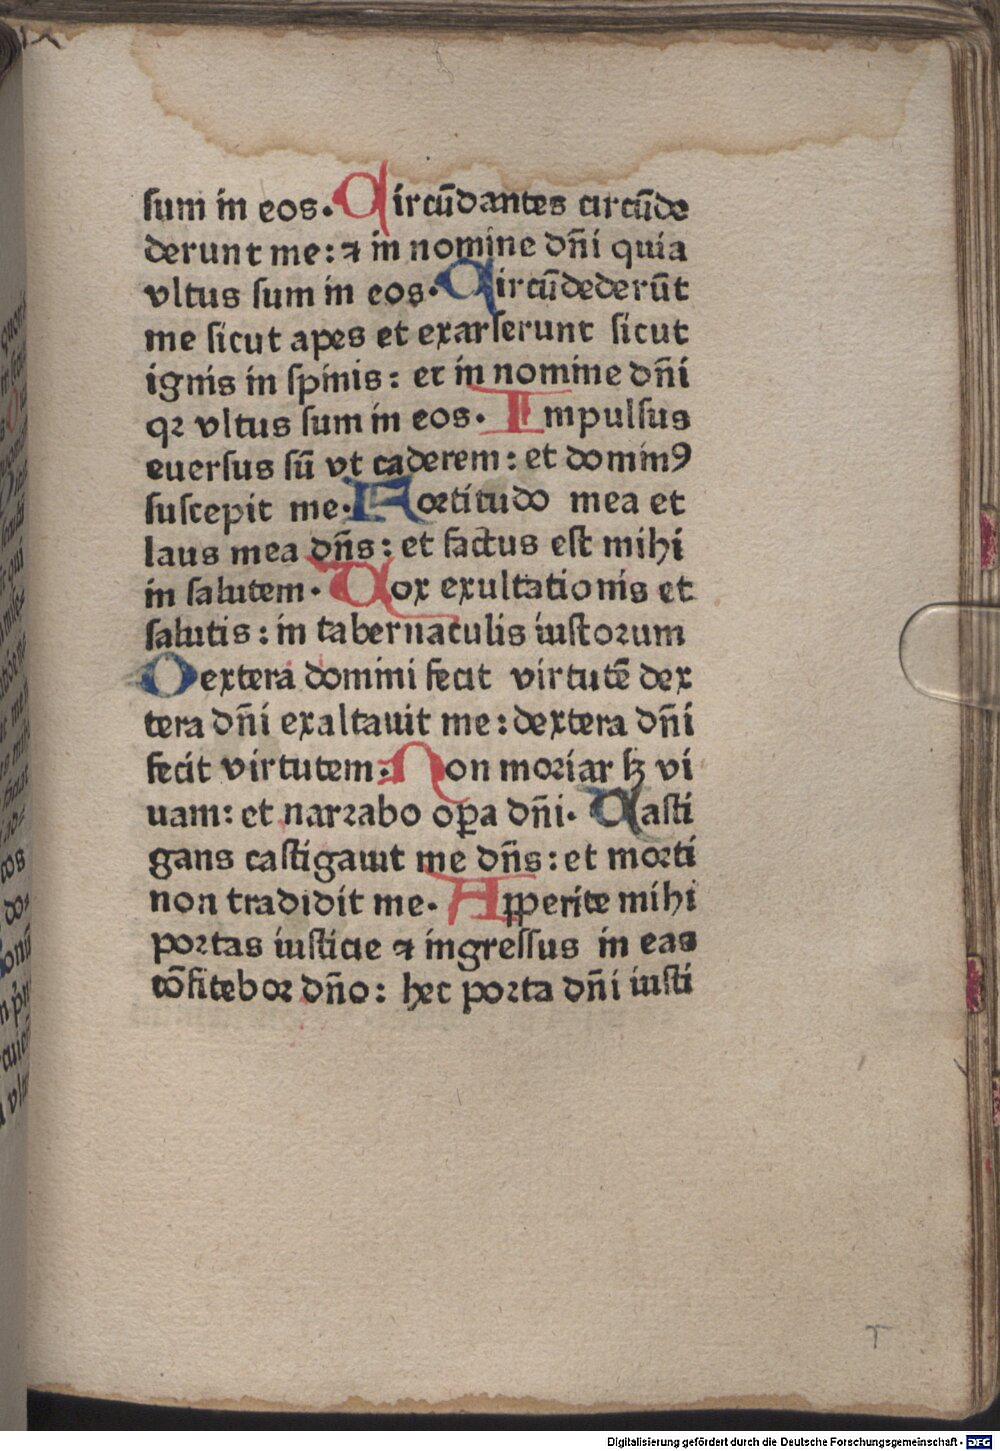 sum in eos. Circũdantes circũde
derunt me: ⁊ in nomine dñi quia
vltus sum in eos. Circũdederũt
me sicut apes et exarserunt sicut
ignis in spinis: et in nomine dñi
qꝛ vltus sum in eos. Impulsus
euersus sũ vt caderem: et dominꝰ
suscepit me. Fortitudo mea et
laus mea dñs: et factus est mihi
in salutem. Vox exultationis et
salutis: in tabernaculis iustorum
Dextera domini fecit virtutẽ dex
tera dñi exaltauit me: dextera dñi
fecit virtutem. Non moriar sꝫ vi
uam: et narrabo oꝑa dñi. Casti
gans castigauit me dñs: et morti
non tradidit me. Apꝑerite mihi
portas iusticie ⁊ ingressus in eas
cõfitebor dño: hec porta dñi iusti
T
Digitalisierung gefördert durch die Deutsche Forschungsgemeinschaft - DFG